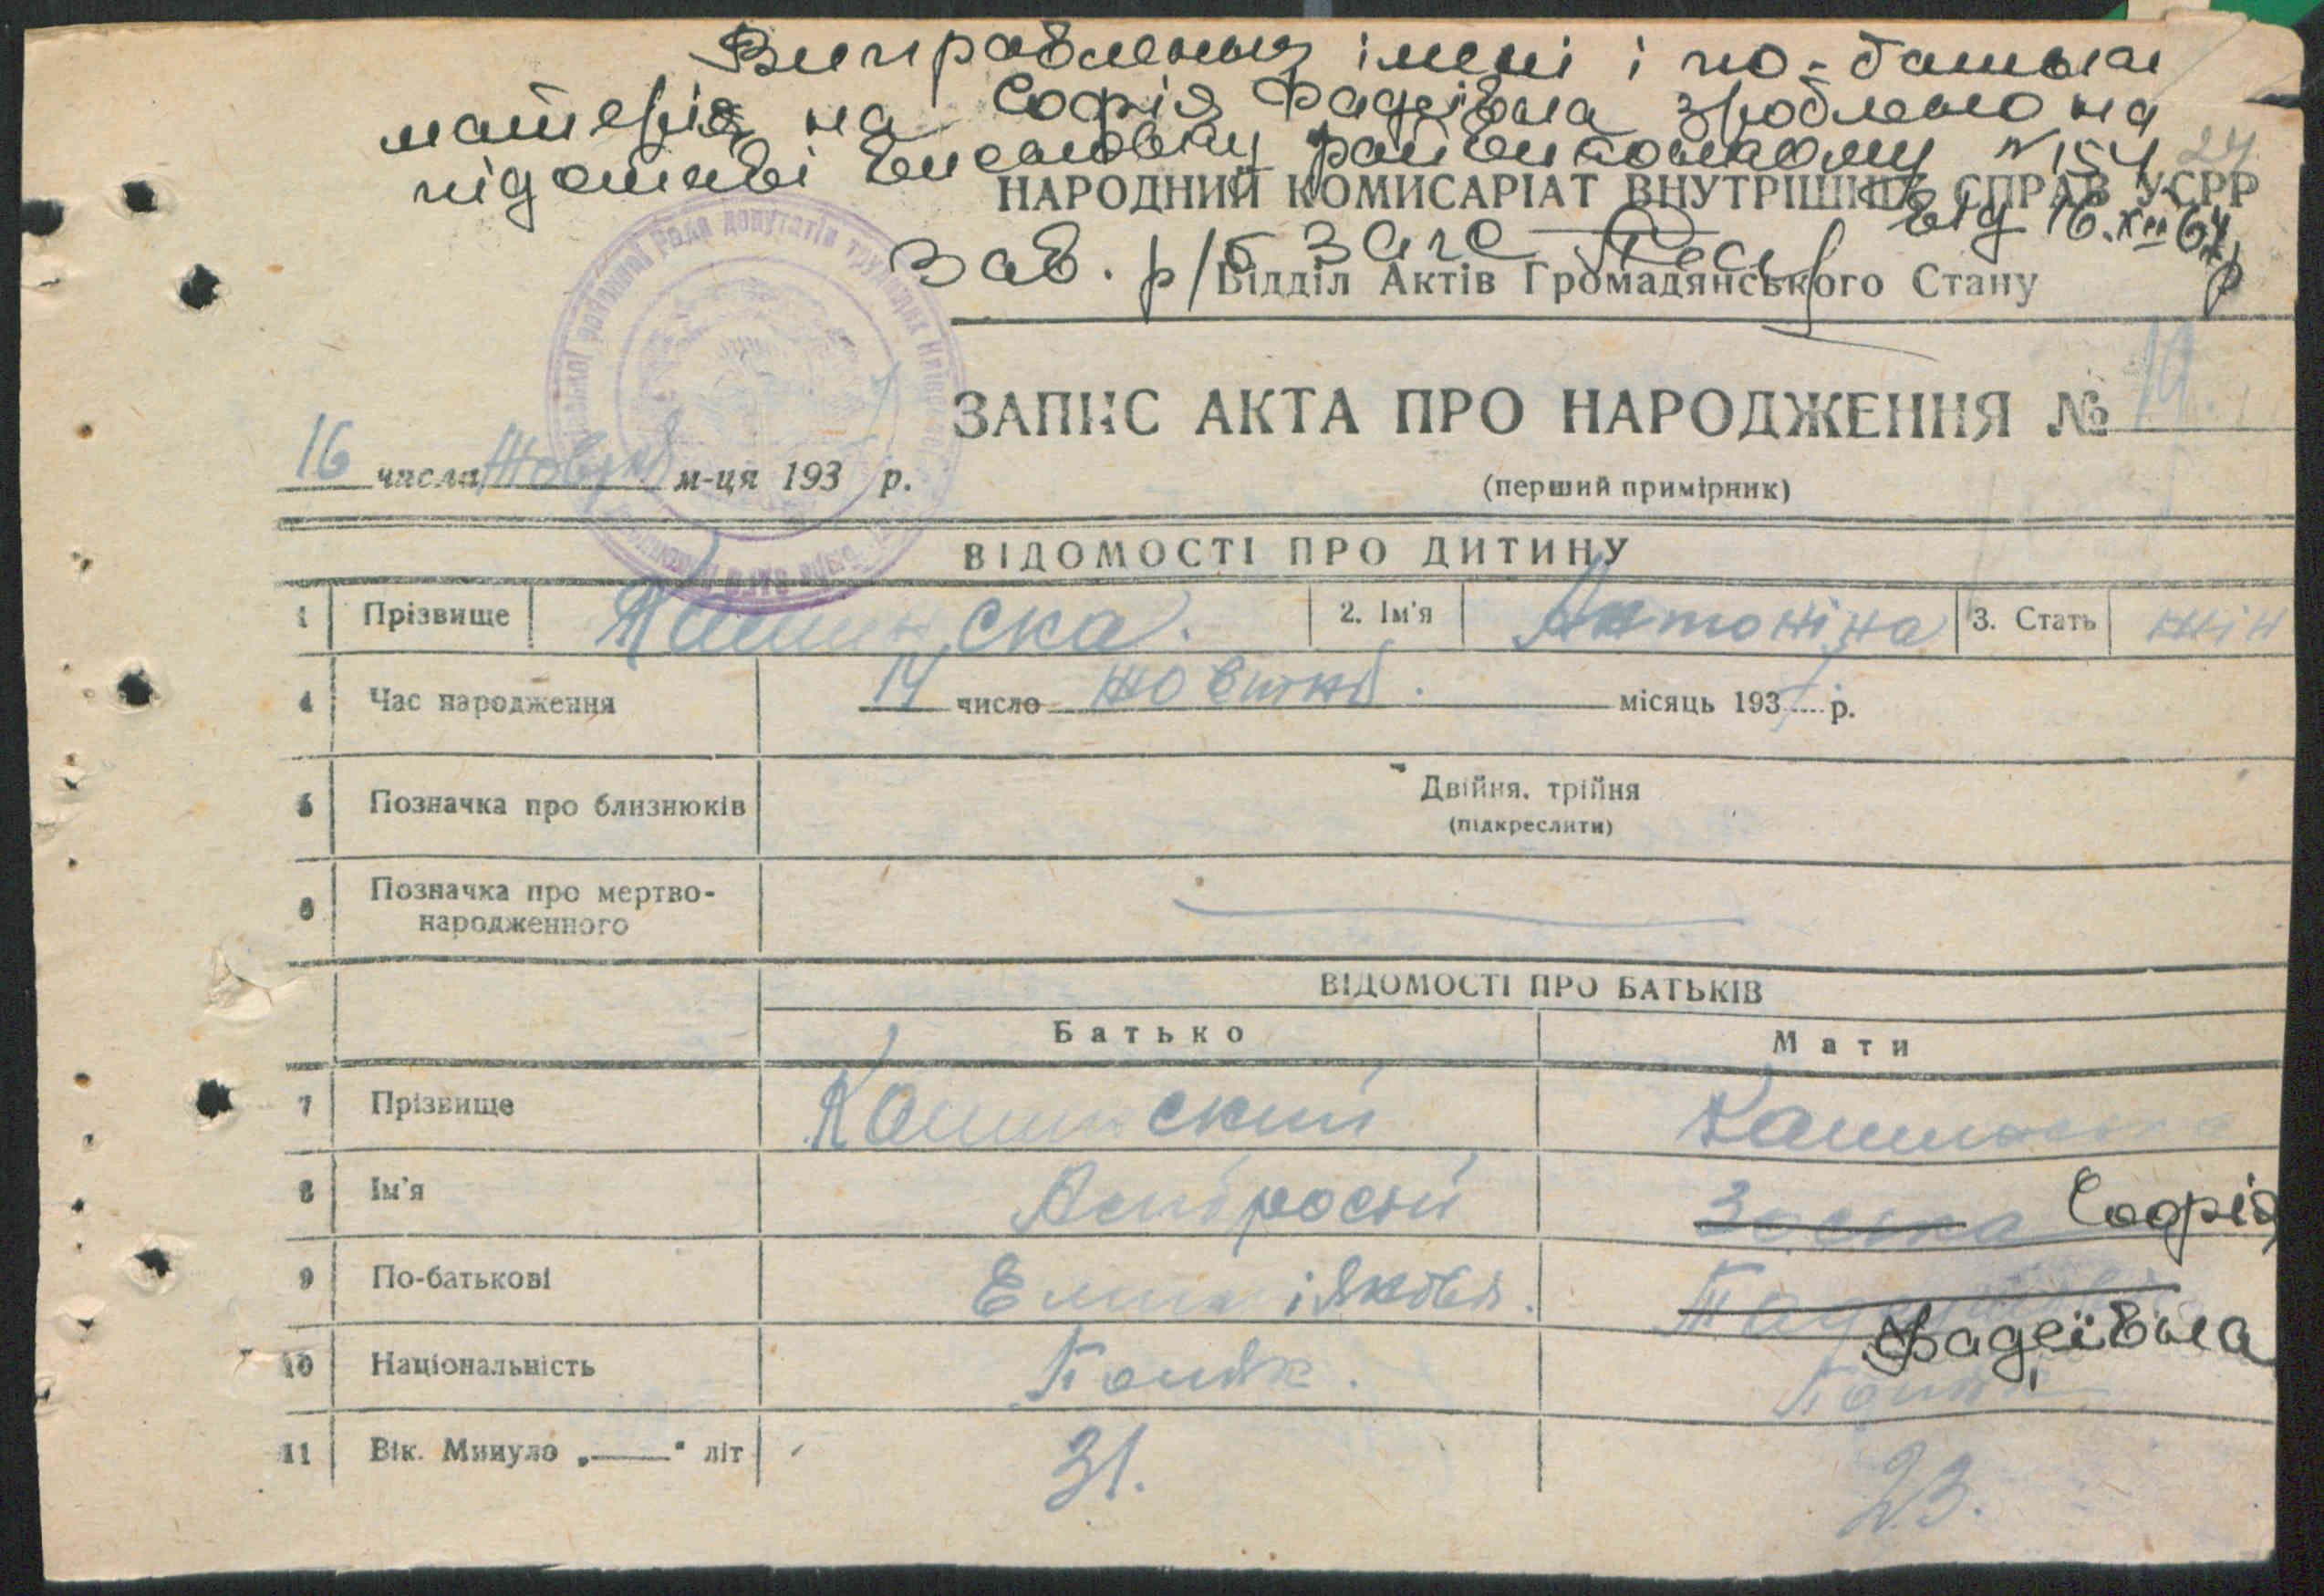 Виправлення імені і по-батькові
матері на Софія Фадеївна зроблено на
підставі висновку райвиконкому №154
24
НАРОДНИЙ КОМИСАРІАТ ВНУТРІШНІХ СПРАВ УСРР
від 16.XII 64 р
Зав. р/б Загс
Відділ Актів Громадянського Стану
ЗАПИС АКТА ПРО НАРОДЖЕННЯ № 19.
16 числа Жовтня м-ця 193 р.
(перший примірник)
ВІДОМОСТІ ПРО ДИТИНУ
1 Прізвище 2. Ім'я Антоніна 3. Стать жін
4 Час народження 14 число жовтня. місяць 1937 р.
5 Позначка про близнюків Двійня, трійня
(підкреслити)
6 Позначка про мертво-
народженного
ВІДОМОСТІ ПРО БАТЬКІВ
Батько Мати
7 Прізвище
8 Ім'я Амбросій Зоська Софія
9 По-батькові
Фадеївна
10 Національність Поляк.
11 Вік. Минуло „——" літ 31. 23.